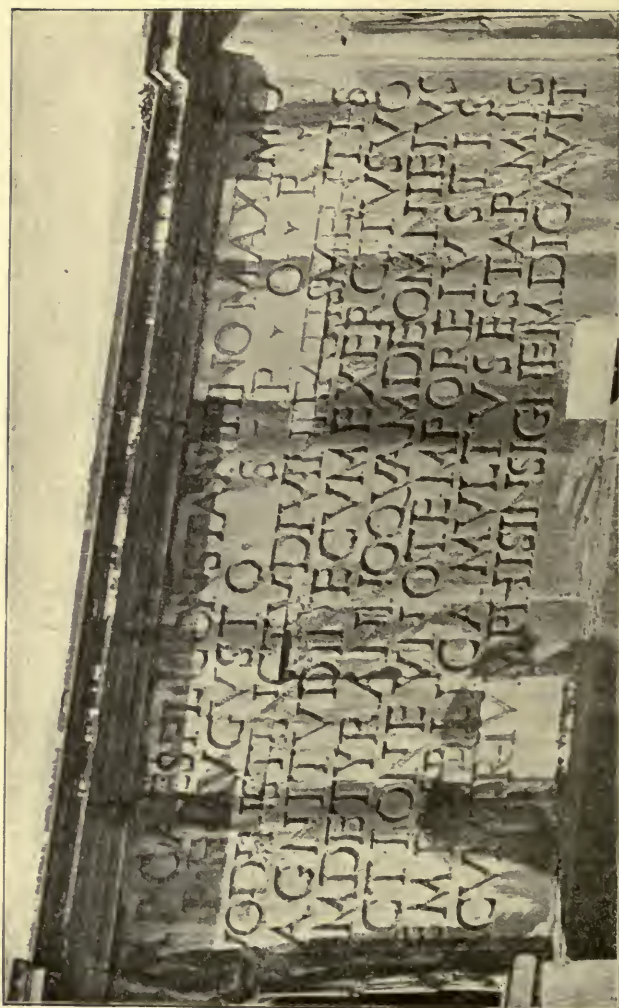 IMP CAES FL CONSTANTINO MAXIMO
P F AVGVSTO · S · P · Q · R ·
VOD INSTINCTV DIVINITATIS MENTIS
AGNITVDINE CVM EXERCITV SVO
AM DE TYRANNO QVAM DE OMNI EIVS
CTIONE VNO TEMPORE IVSTIS
EM PVBLICAM VLTVS EST ARMIS
CVM TRIVMPHIS INSIGNEM DICAVIT